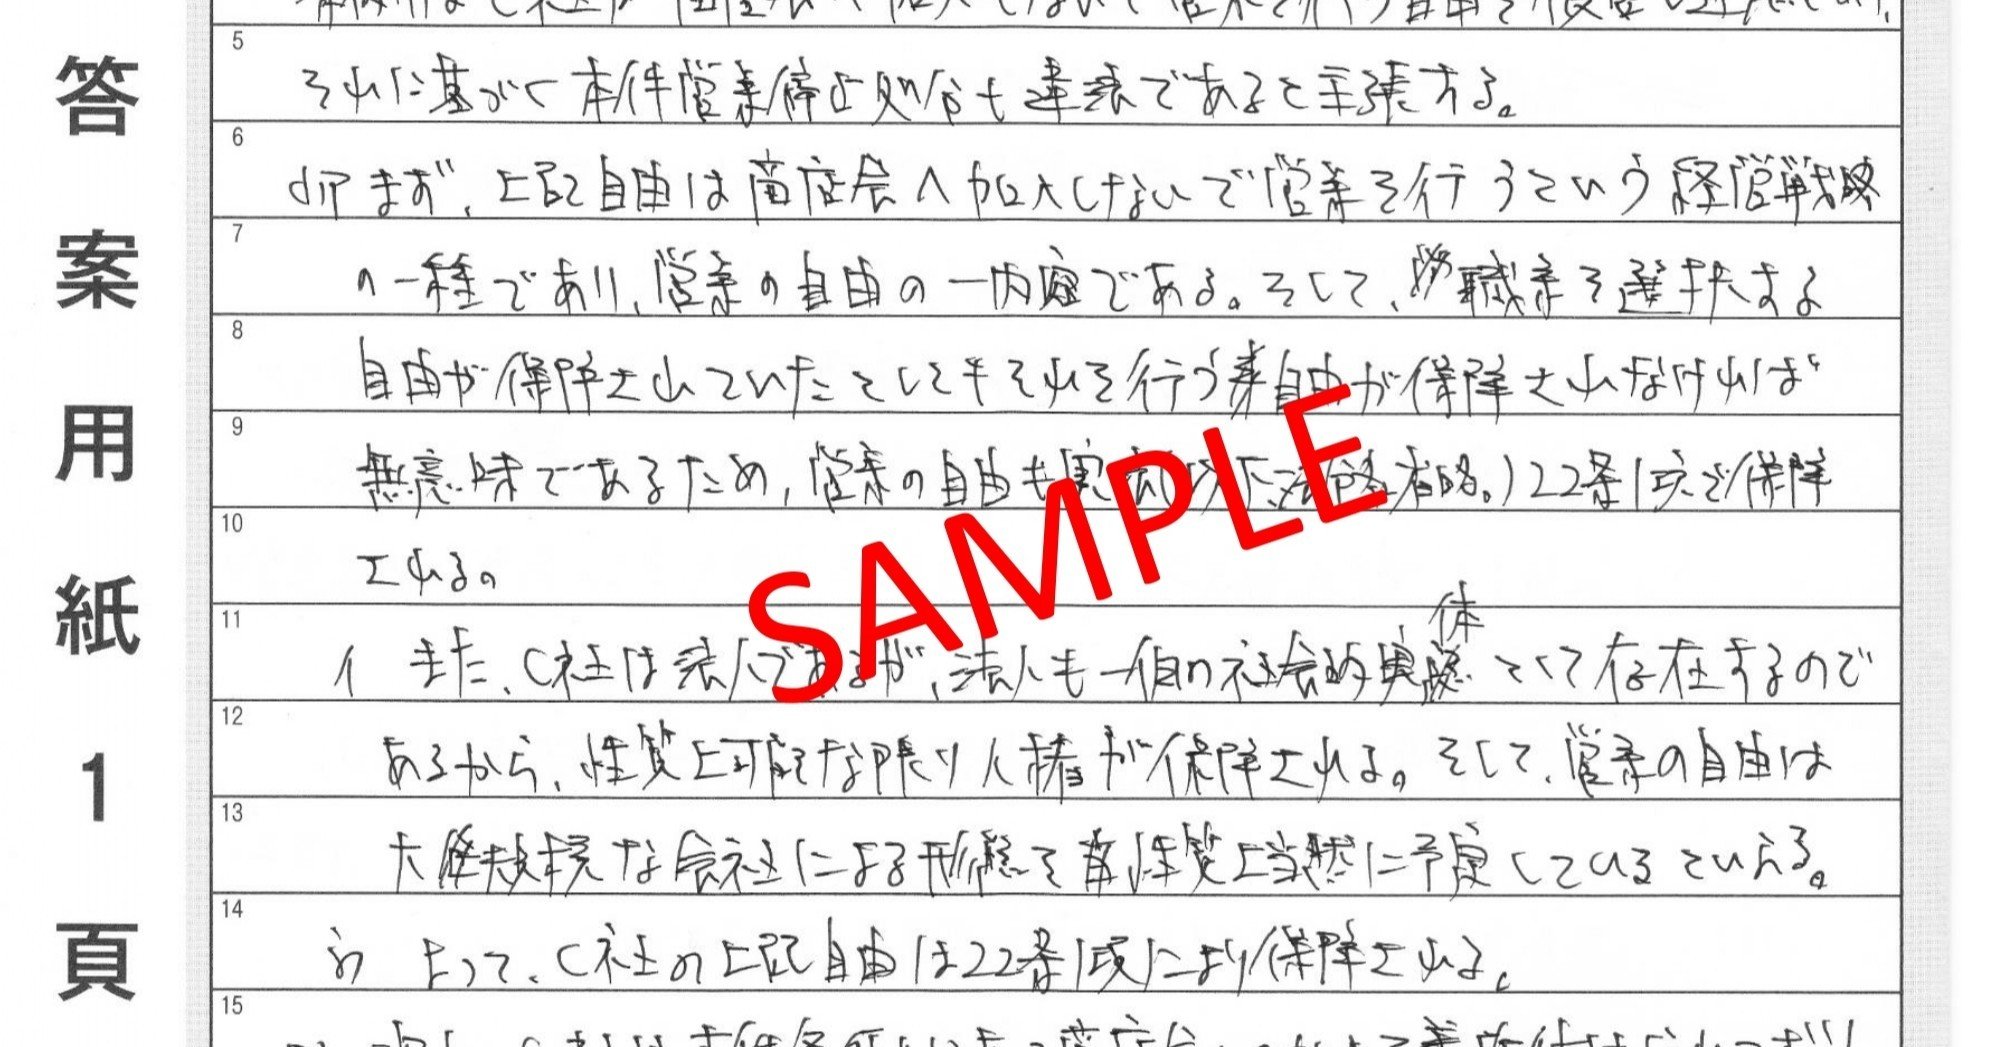 答案用紙1頁
5
それに基づく本件営業停止処分も違憲であると主張する。
6
(1)ア まず、上記自由は商店会へ加入しないで営業を行うという経営戦略
7
の一種であり、営業の自由の一内容である。そして、職業を選択する
8
自由が保障されていたとしてもそれを行う自由が保障されなければ
9
無意味であるため、営業の自由も憲法(以下法名略。)22条1項で保障
10
される。
11
イ また、C社は法人であるが、法人も一個の社会的実体として存在するので
12
あるから、性質上可能な限り人権が保障される。そして、営業の自由は
13
大規模な会社による形態を性質上当然に予定しているといえる。
14
ウ よって、C社の上記自由は22条1項により保障される。
15
SAMPLE